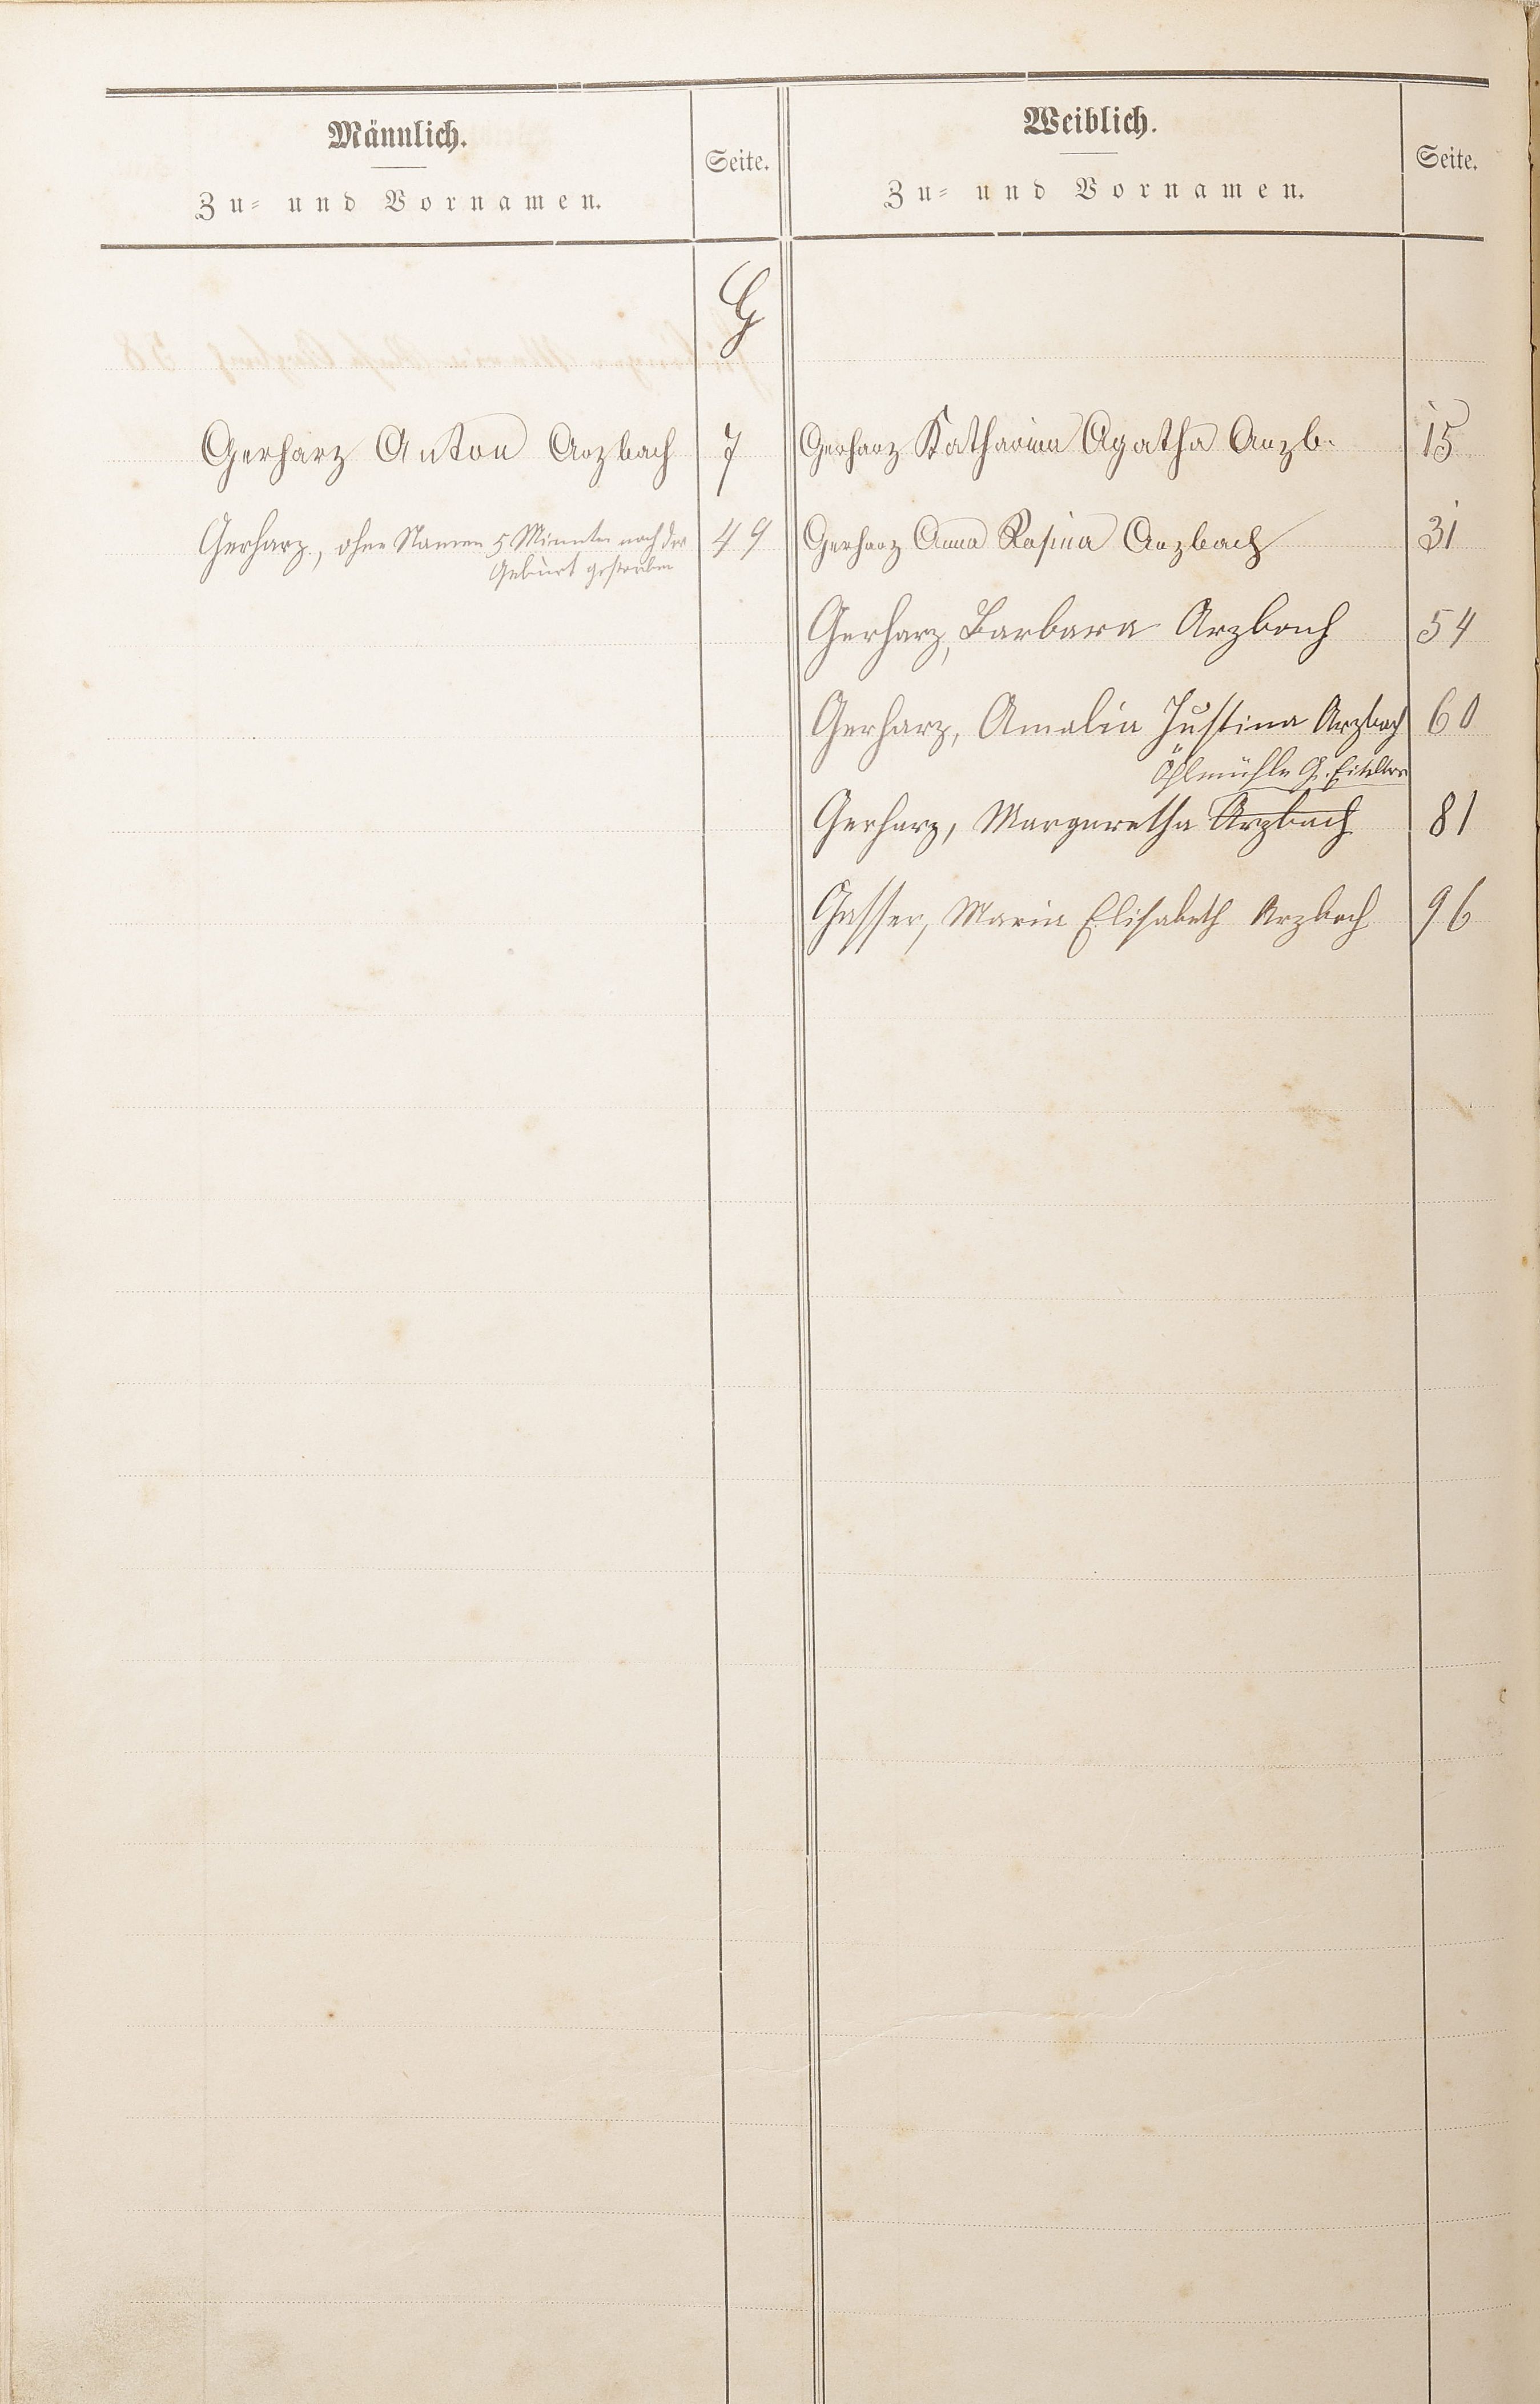 Männlich.
Zu- und Vornamen.
Seite.
Weiblich.
Zu- und Vornamen.
Seite.
G
Gerharz Anton Arzbach 7
Gerharz, ohne Namen 5 Minuten nach der 49
Geburt gestorben
Gerharz Katharina Agatha Arzb. 15
Gerharz Anna Rosina Arzbach 31
Gerharz, Barbara Arzbach 54
Gerharz, Amalia Justina Arzbach 60
Öhlmühle G.
Gerharz, Margaretha Arzbach 81
Gasser, Maria Elisabeth Arzbach 96